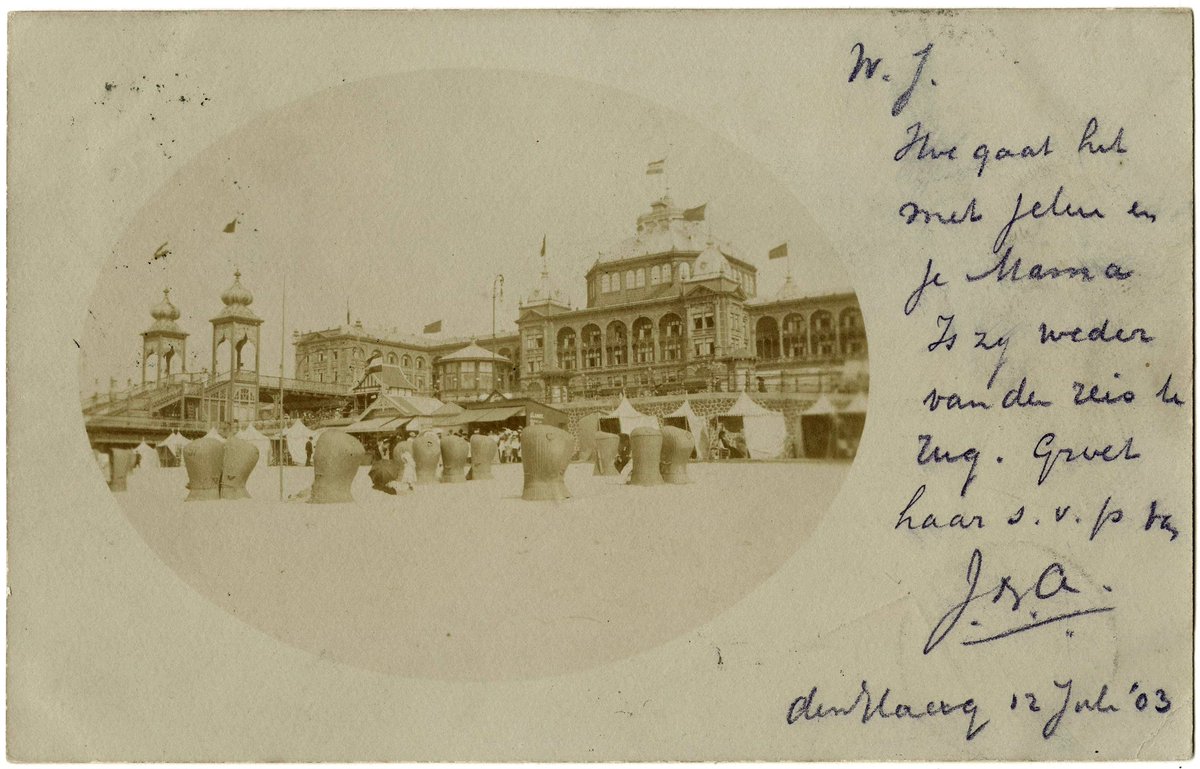 W. J.
Hoe gaat het
met Jelui en
je Mama
Is zy weder
van den reis te
rug. Groet
haar s.v.p van
den Haag 12 Juli '03